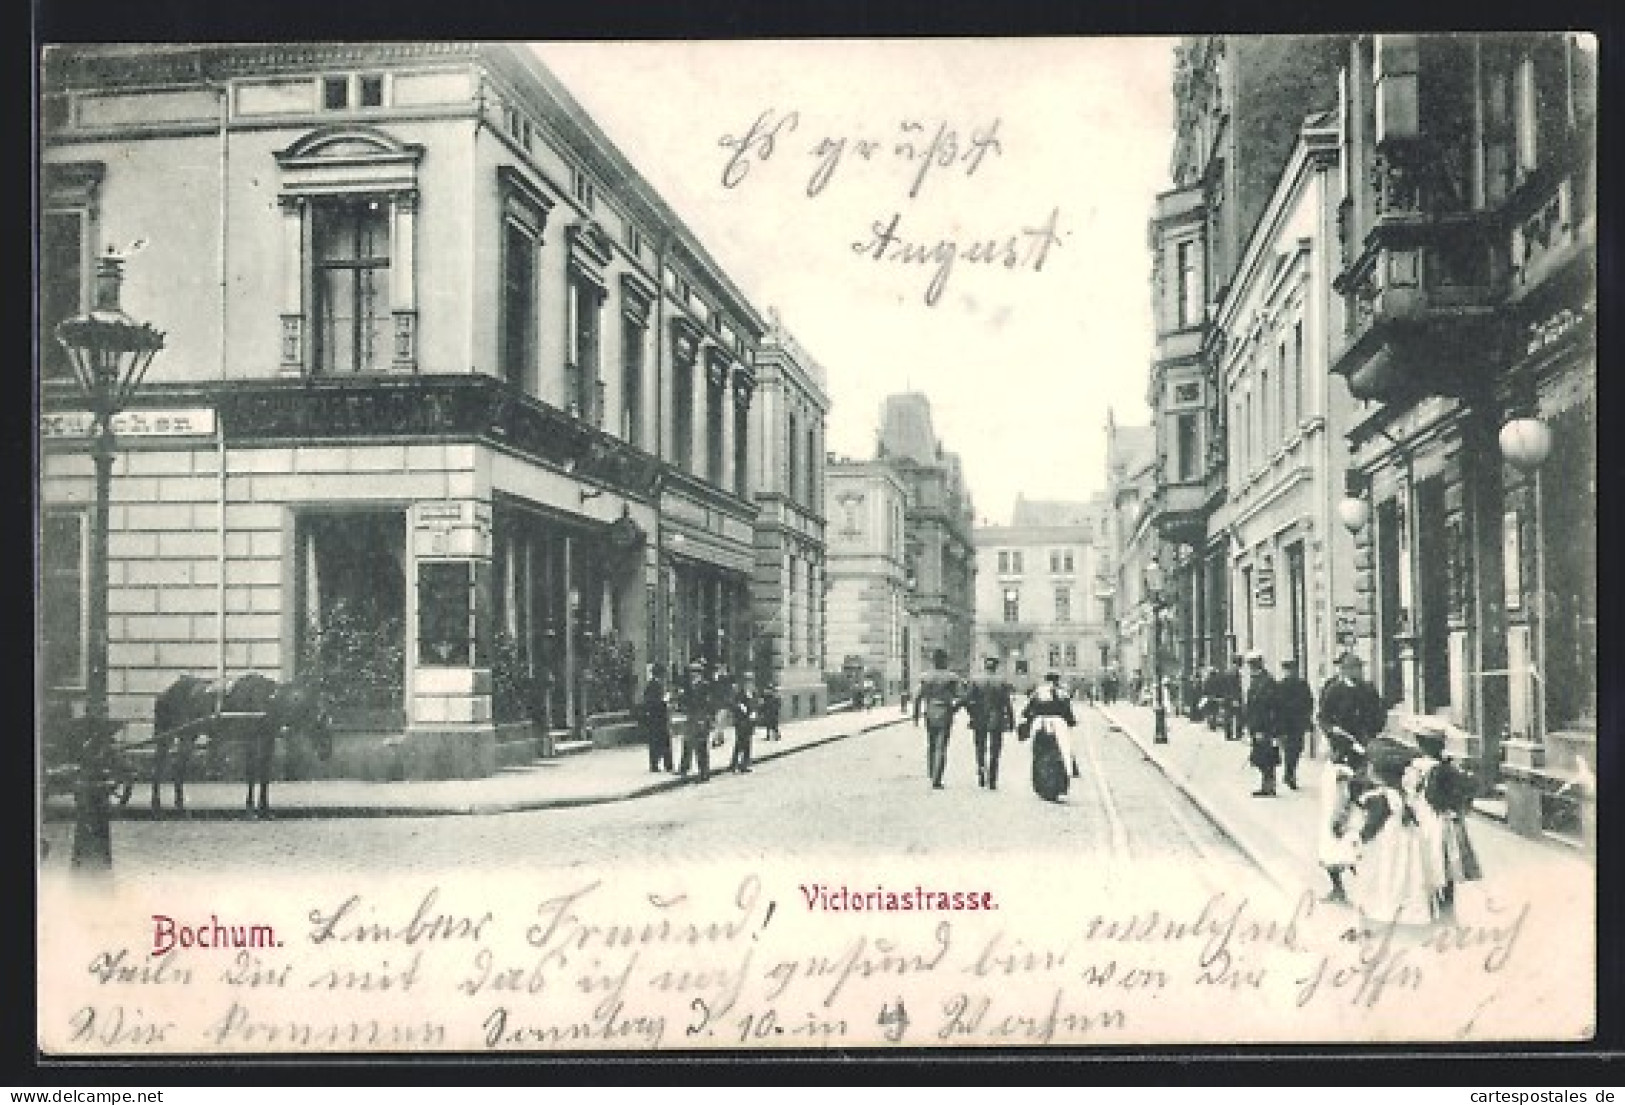 Es grüßt
August
Victoriastrasse.
Bochum. Lieber Freund!
Teile Dir mit das ich noch gesund bin welches ich auch von Dir hoffe
Wir kommen Sonntag d. 10. in 4 Wochen
cartespostales de